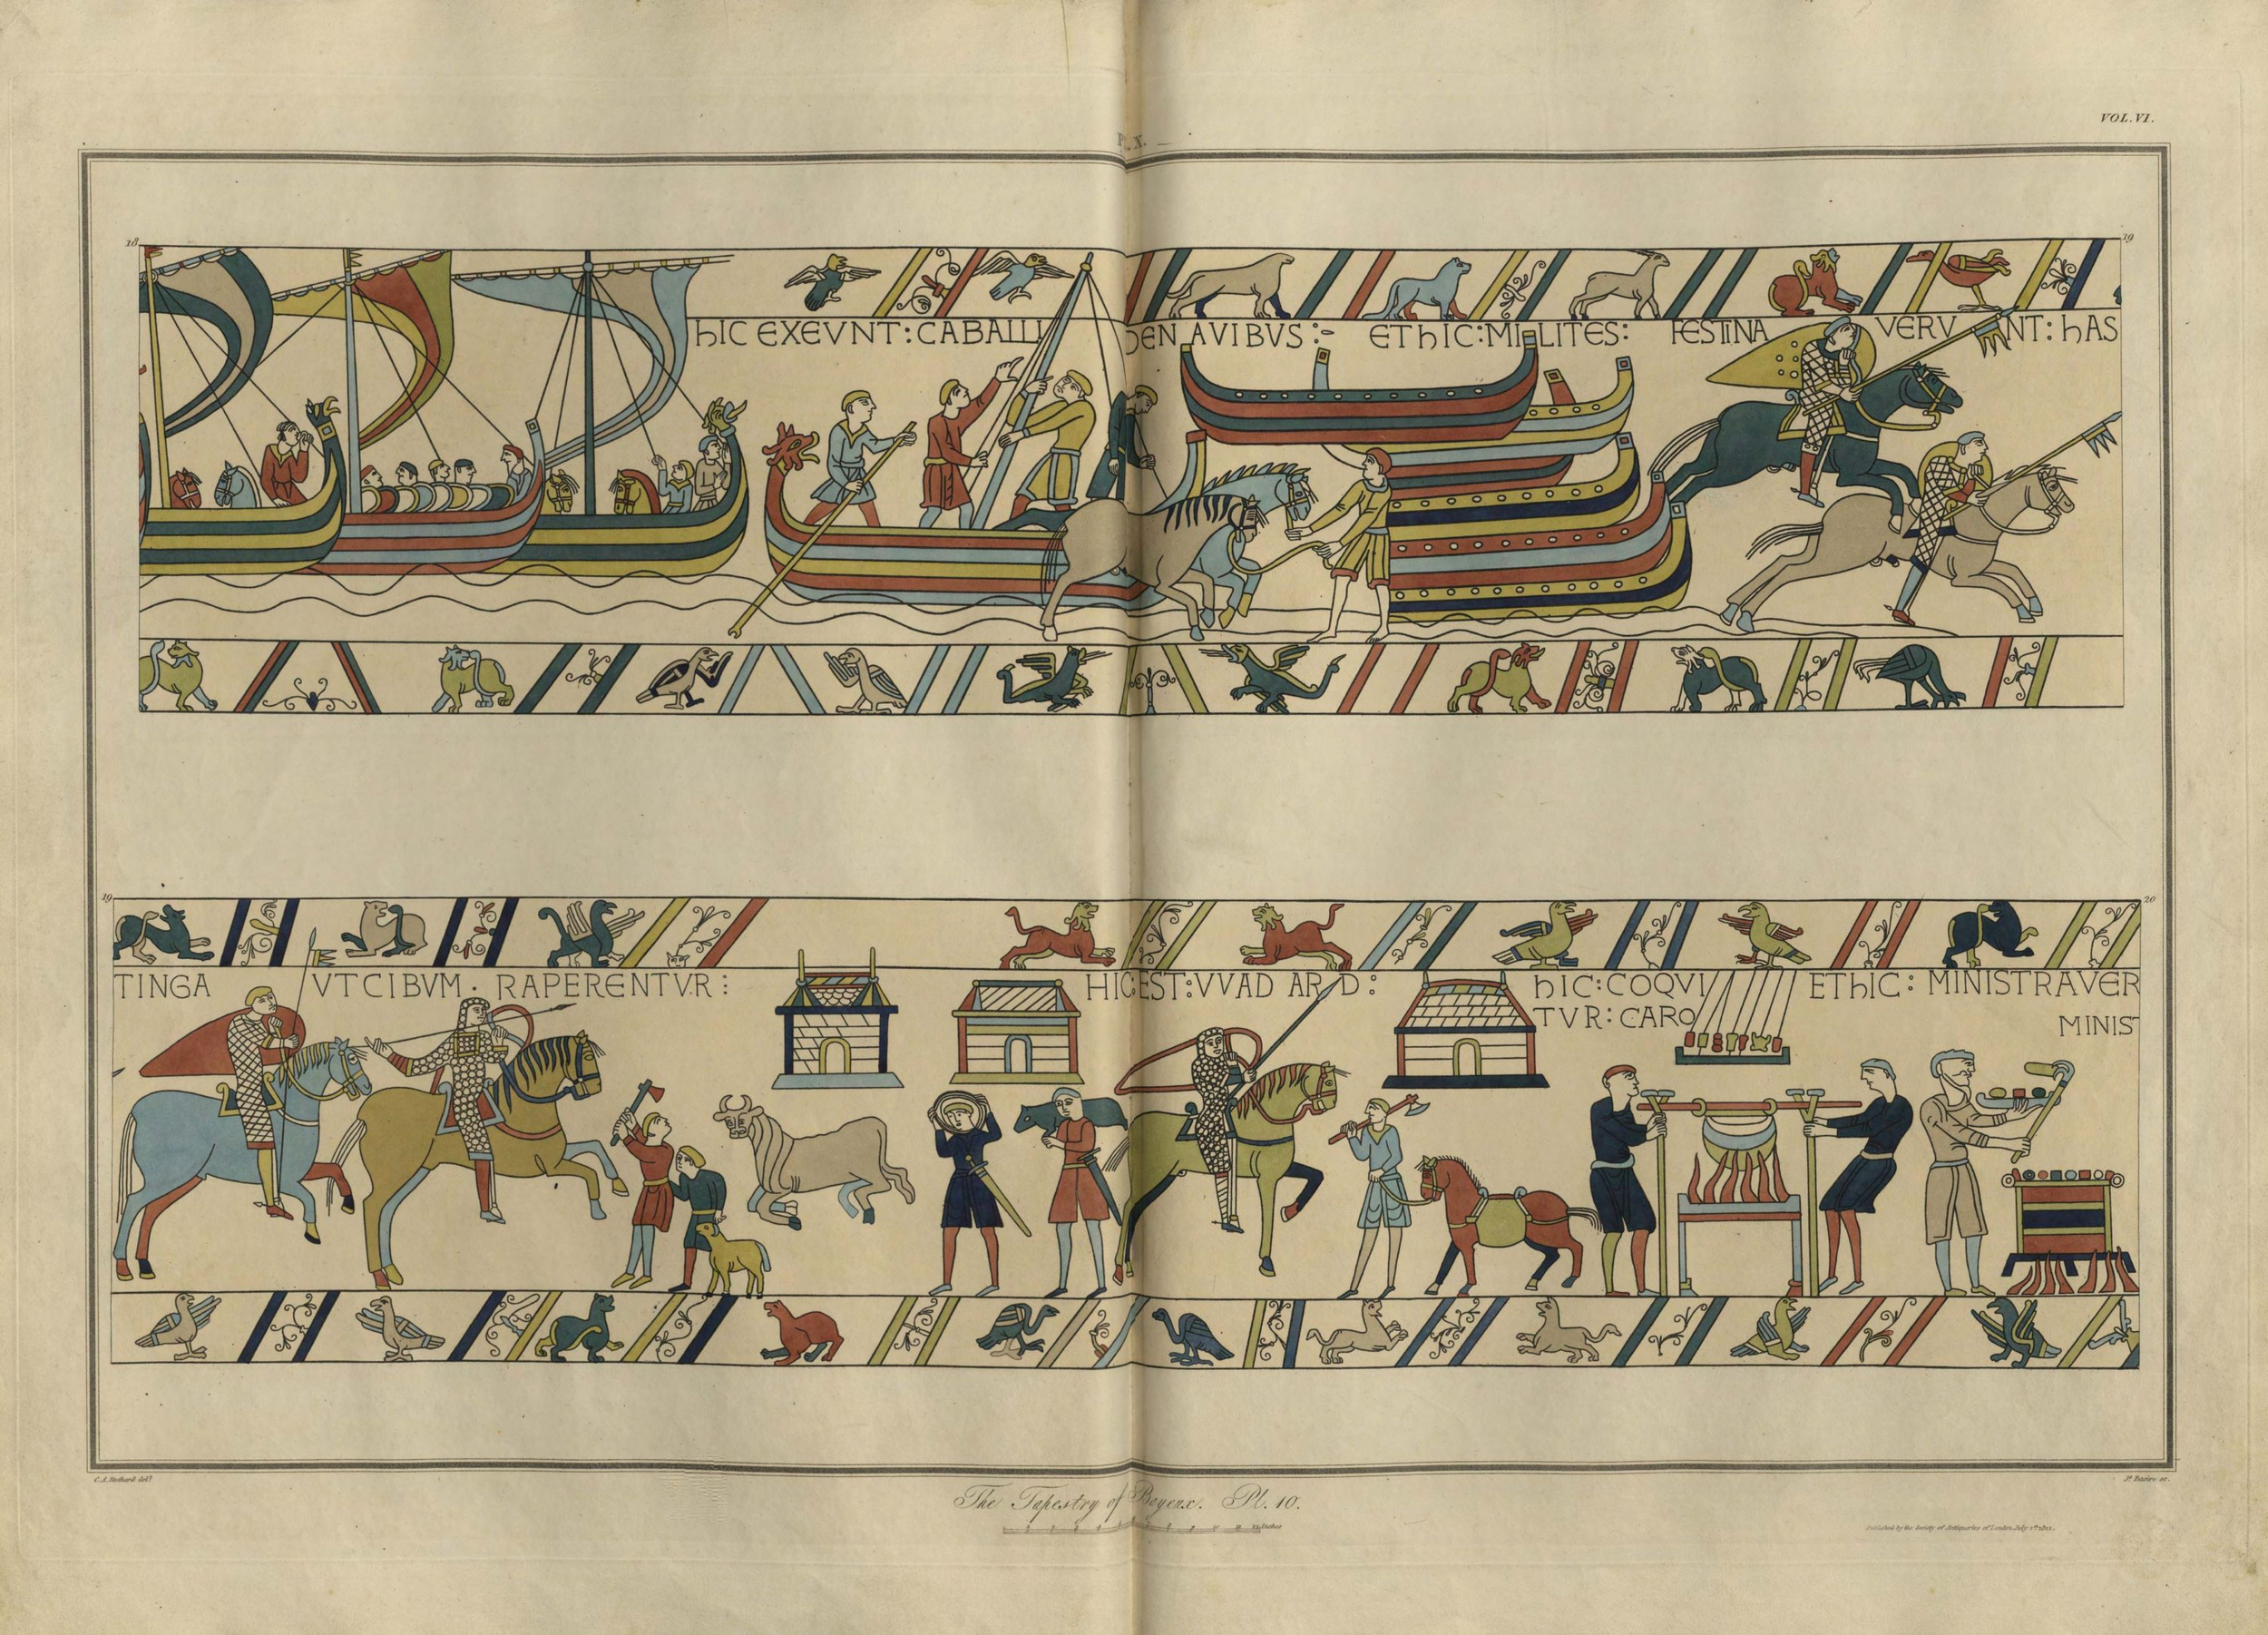 VOL. VI.
Pl. X.
18
19
hIC EXEVNT : CABALLI DEN AVIBVS :- ET hIC : MILITES : FESTINA VERV NT : hAS
19
20
TINGA VT CIBVM · RAPERENTVR :
HIC EST : VVAD ARD :
hIC : COQVI
TVR : CARO
ET hIC : MINISTRAVER
MINIST
C. A. Stothard delt.
Js. Basire sc.
The Tapestry of Bayeux. Pl. 10.
Inches
Published by the Society of Antiquaries of London, July